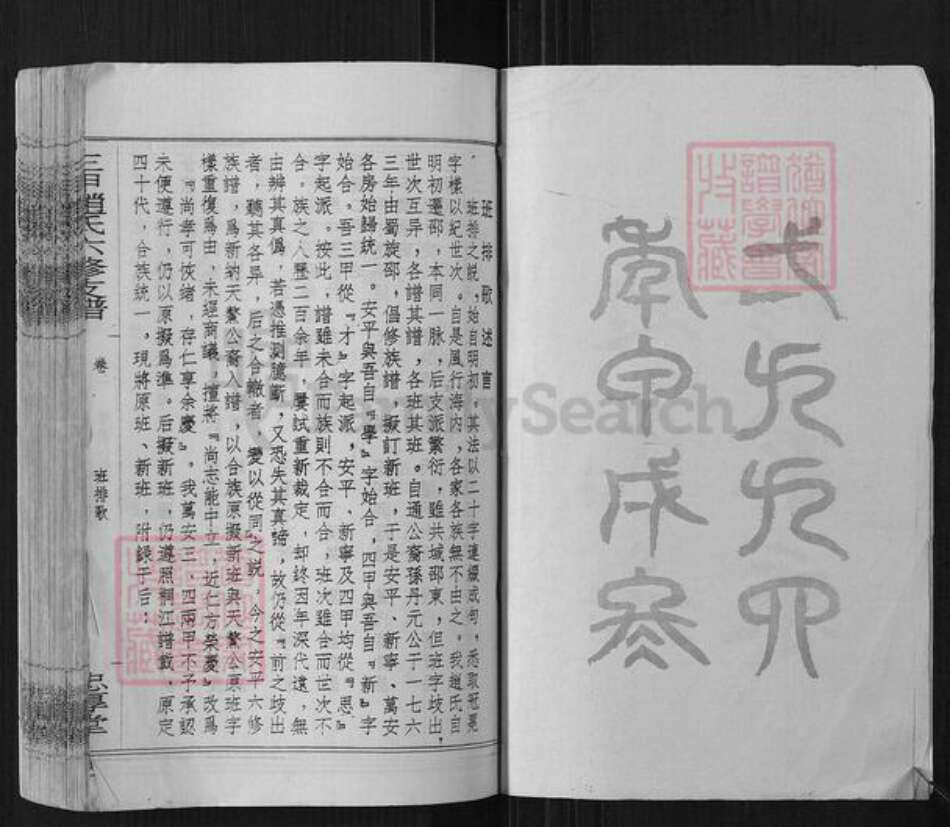 一九九四
年甲戌冬
班排歌述言
班排之說，始自明初。其法以二十字連綴成句，悉取冠冕
字樣以紀世次。自是風行海内，各家各族無不由之。我趙氏自
明初遷邵，本同一脉，后支派繁衍，雖共域邵東，但班字歧出，
世次互异，各譜其譜，各班其班。自通公裔孫丹元公于一七六
三年由蜀旋邵，倡修族譜，擬訂新班，于是安平、新寧、萬安
各房始歸統一。安平與吾自『學』字始合，四甲與吾自『新』字
始合。吾三甲從『才』字起派，安平、新寧及四甲均從『思』
字起派。按此，譜雖未合而族則不合而合，班次雖合而世次不
合。族之人歷二百余年，屢試重新裁定，却終因年深代遠，無
由辨其真僞，若憑推測臆斷，又恐失其真諦，故仍從『前之歧出
者，聽其各异，后之合轍者，變以從同』之說，今之安平六修
族譜，爲新納天驚公裔入譜，以合族原擬新班與天驚公原班字
樣重復爲由，未經商議，擅將『尚志能中立，近仁方榮慶』改爲
『尚孝可恢緒，存仁享余慶』。我萬安三、四兩甲不予承認
未便遵行，仍以原擬爲準。后擬新班，仍遵照桐江譜載，原定
四十代，合族統一。現將原班、新班，附錄于后：
三甲趙氏六修支譜
卷
班排歌
忠厚堂
收藏
FamilySearch